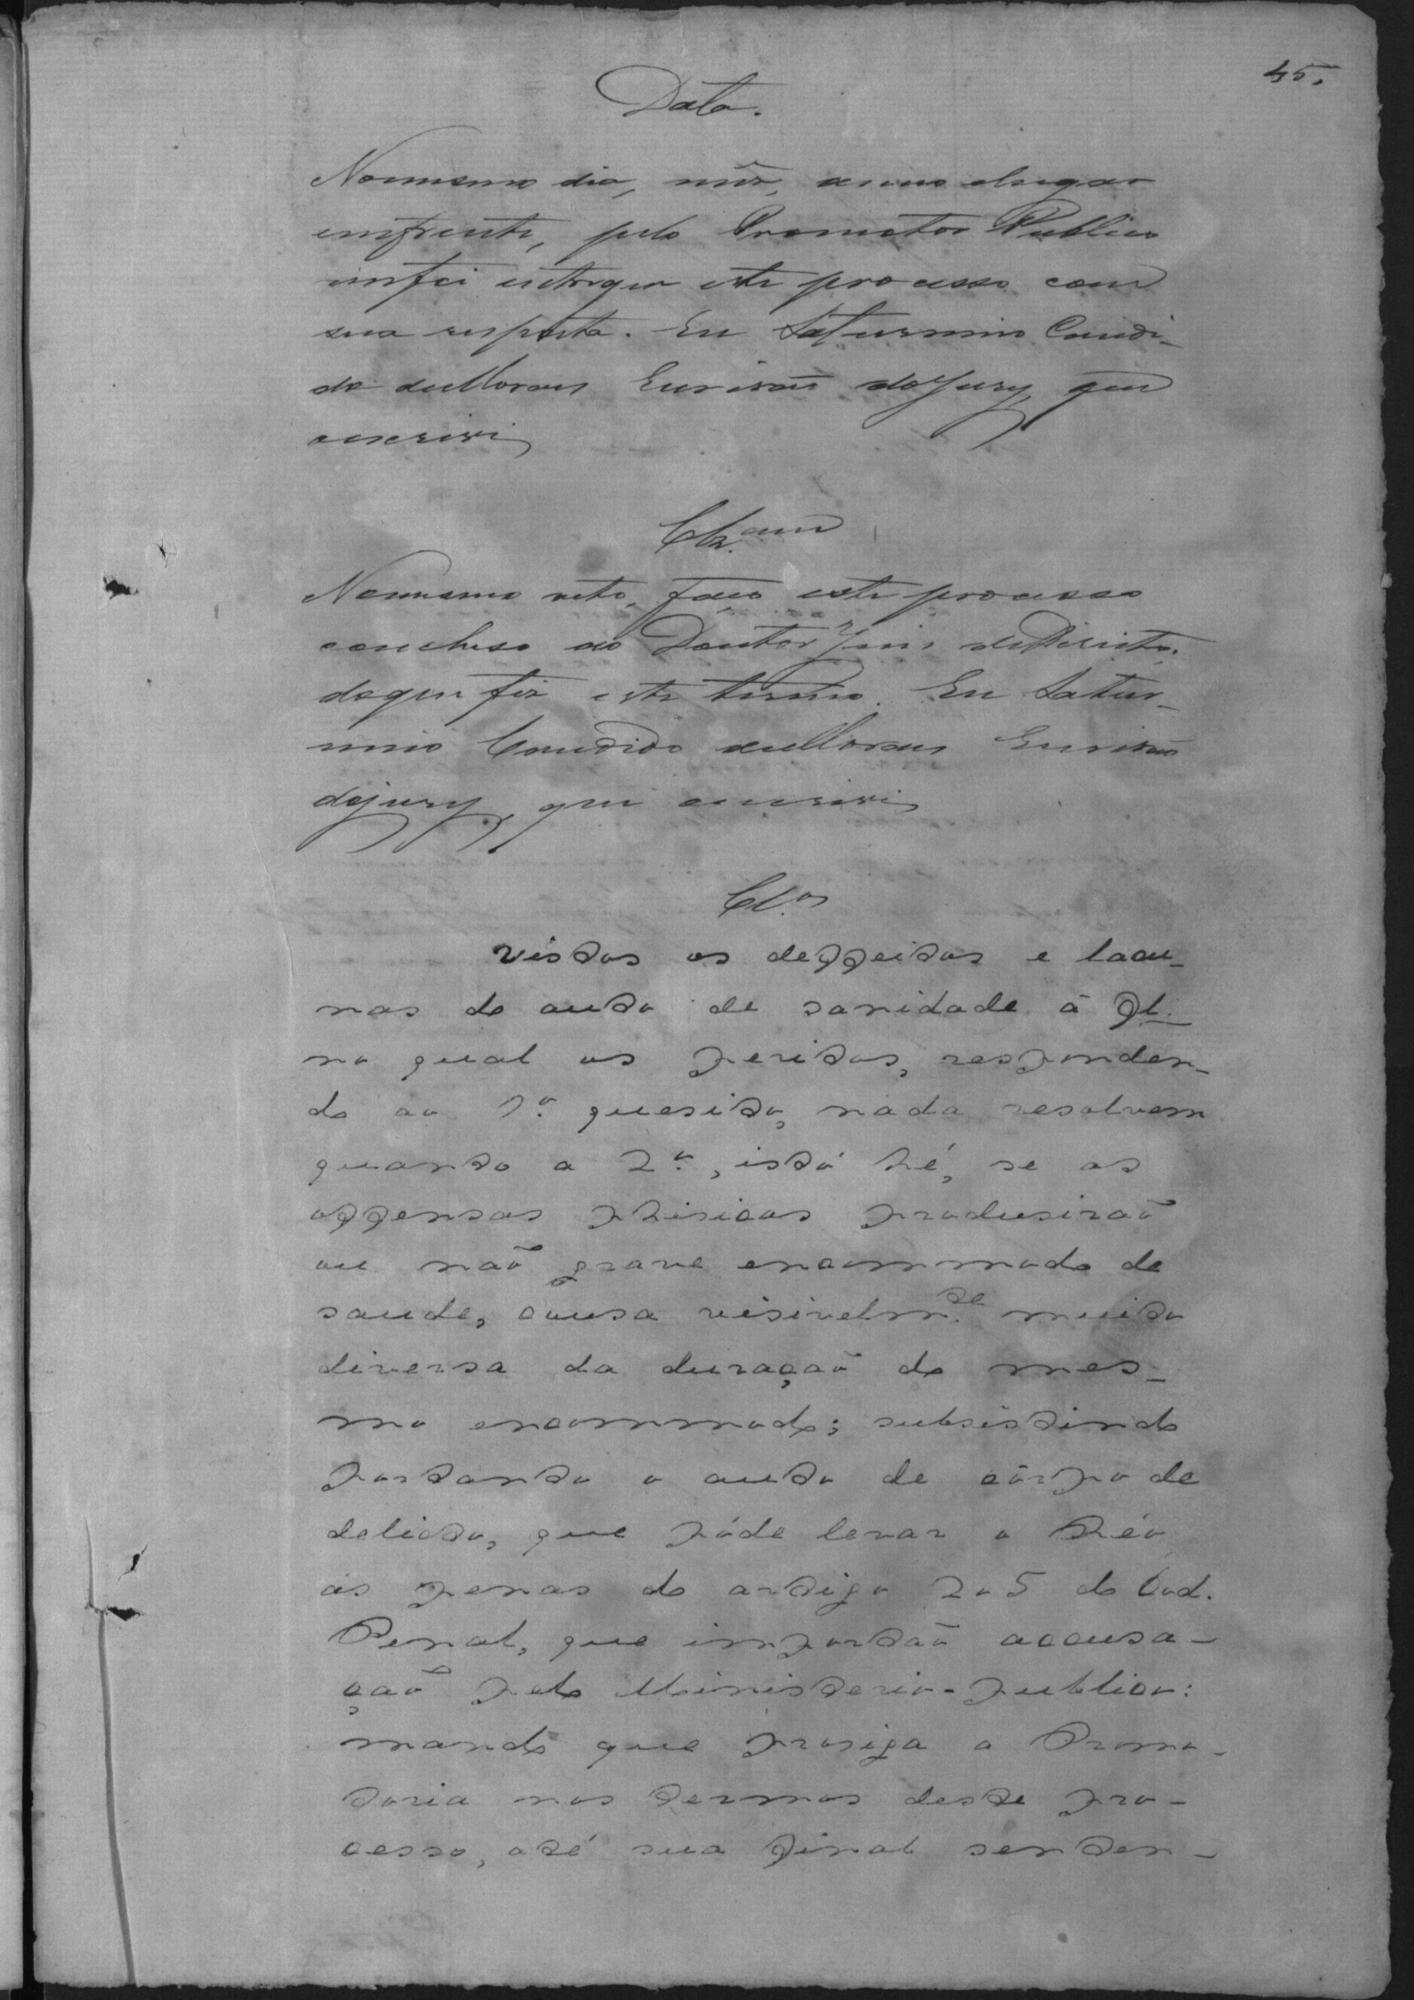 45.
Data.
No mesmo dia, mez, anno e lugar
emfrente, pelo Promotor Publico
me foi entregue este processo com
sua resposta. Eu Saturnino Candi-
do de Moraes Escrivão do Jury, que
escrevi
Cl.am
No mesmo acto, faço este processo
concluso ao Doutor Juis de Direito,
do que fiz este termo. Eu Satur-
nino Candido de Moraes Escrivão
do jury, que escrevi
Cl.os
Vistos os deffeitos e lacu-
nas do auto de sanidade á fl.
no qual os peritos, responden-
do ao 1.º quesito, nada resolvem
quanto a 2.º, istó hé, se as
offensas phisicas produsirão
ou não grave encommodo de
saude, cousa visivelm.te muito
diversa da duração do mes-
mo encommodo; subsistindo
portanto o auto de côrpo de
delicto, que póde levar o Réo
ás penas do artigo 205 do Cod.
Penal, que importão accusa-
ção pelo Ministerio-publico:
mando que prosiga a Promo-
toria nos termos deste pro-
cesso, até sua final senten-